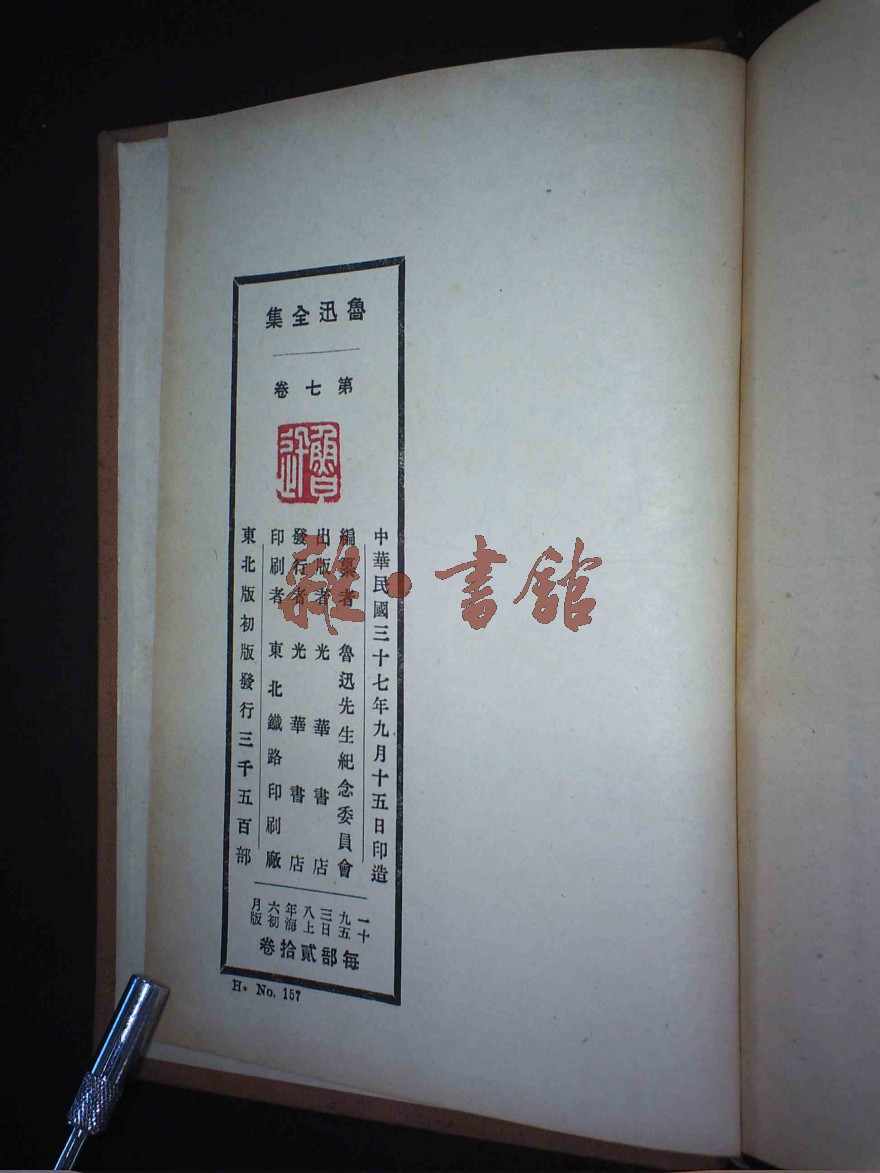 魯迅全集
第七卷
魯迅
中華民國三十七年九月十五日印造
編纂者 魯迅先生紀念委員會
出版者 光華書店
發行者 光華書店
印刷者 東北鐵路印刷廠
東北版初版發行三千五百部
一九三八年六月
十五日上海初版
每部貳拾卷
H. No. 157
雜·書館